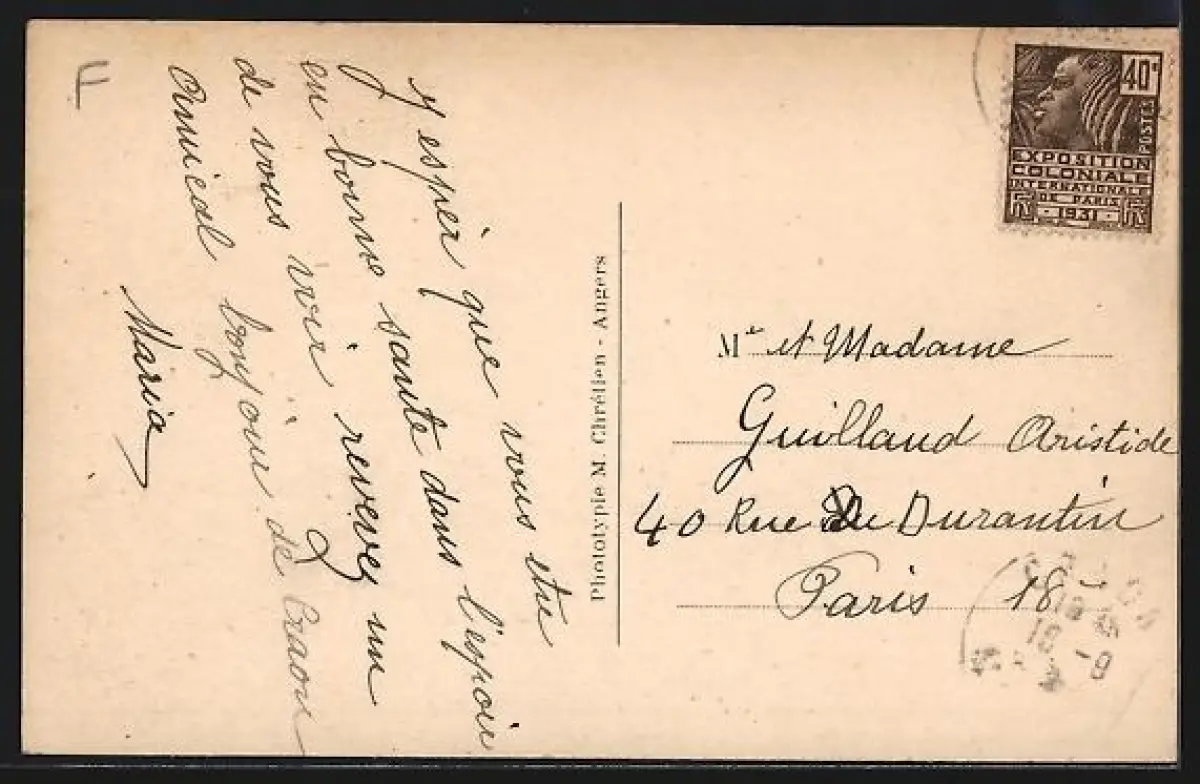 J'espèr que vous etre
en bonne sante dans l'espoir
de vous voir recevez un
amical bonjour de Craon
Maria
Phototypie M. Chrétien - Angers
40c
POSTES
EXPOSITION
COLONIALE
INTERNATIONALE
DE PARIS
1931
Mr et Madame
Guilland Aristide
40 Rue De Durantin
Paris 18